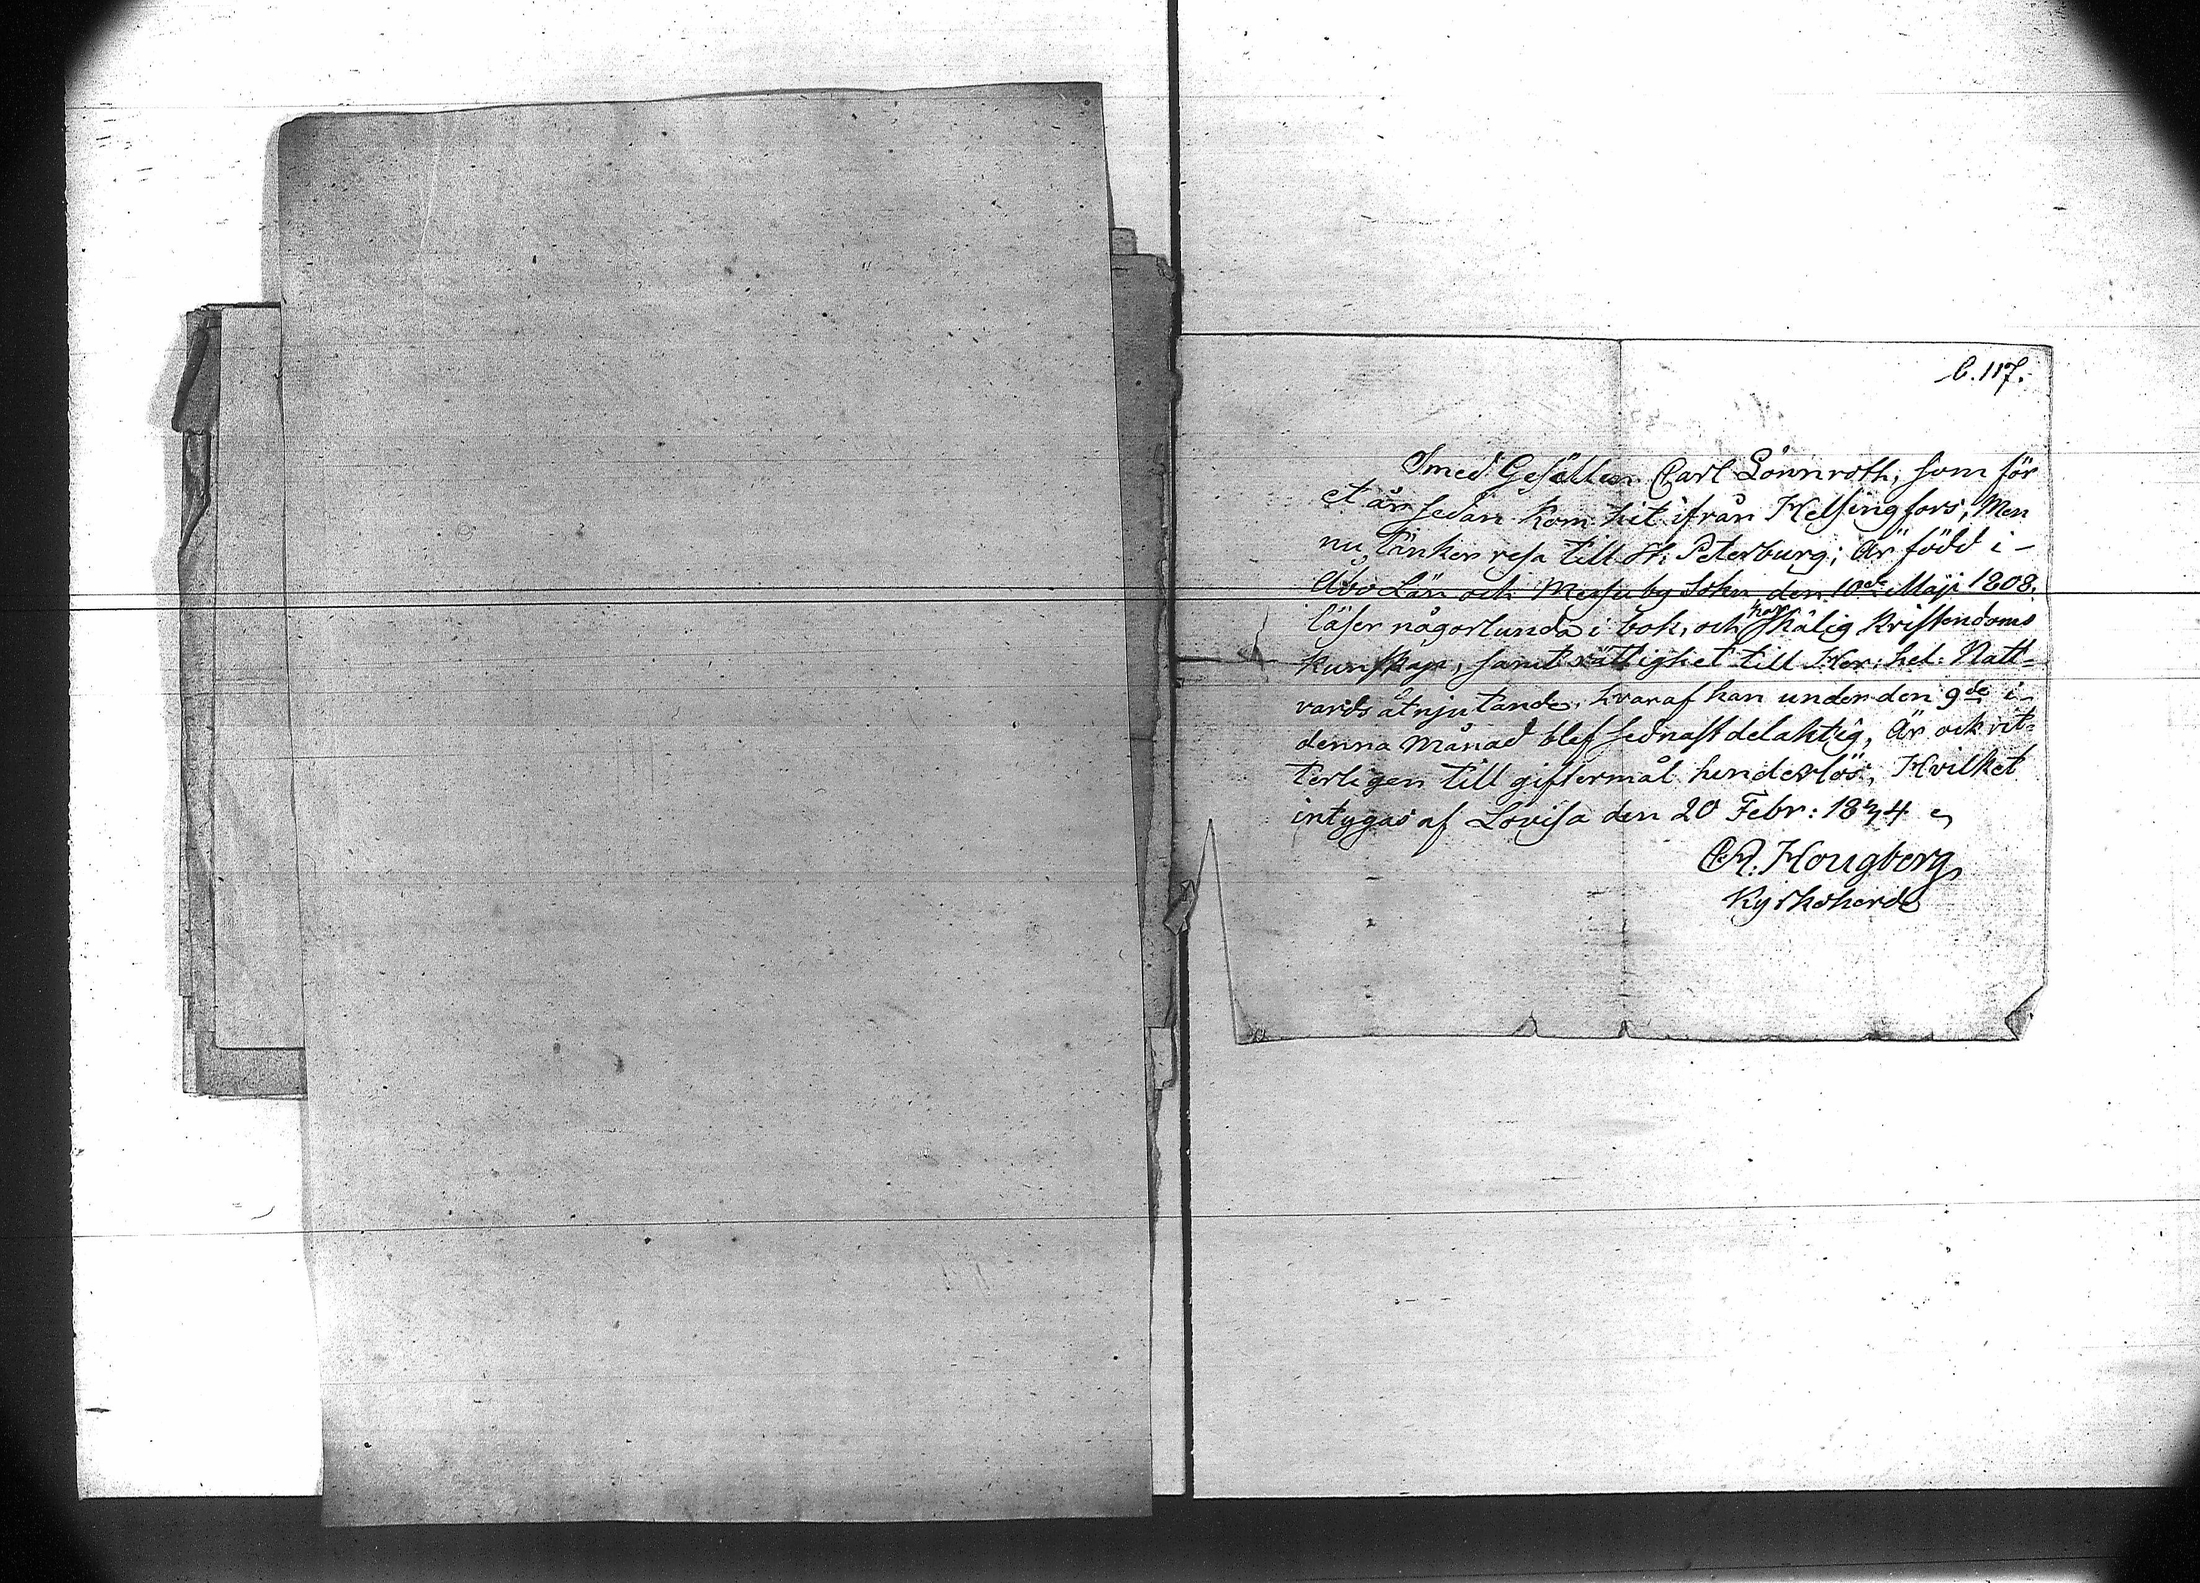 C. 117.
Smed Gesällen Carl Lönnroth, som för
et år sedan kom hit ifrån Helsingfors, Men
nu tänker resa till St. Peterburg; är född i
Åbo Län och by Sokn den 10de Maji 1808.
läser någorlunda i bok, och har skälig Kristendoms
kunskap, samt rättighet till Her: hel: Natt-
vards åtnjutande, hvaraf han under den 9de i
denna Månad blef sednast delaktig, Är ock vit-
terligen till giftermål hinderlös, Hvilket
intygas af Lovisa den 20 Febr: 1834
Hougberg
Kyrkoherde